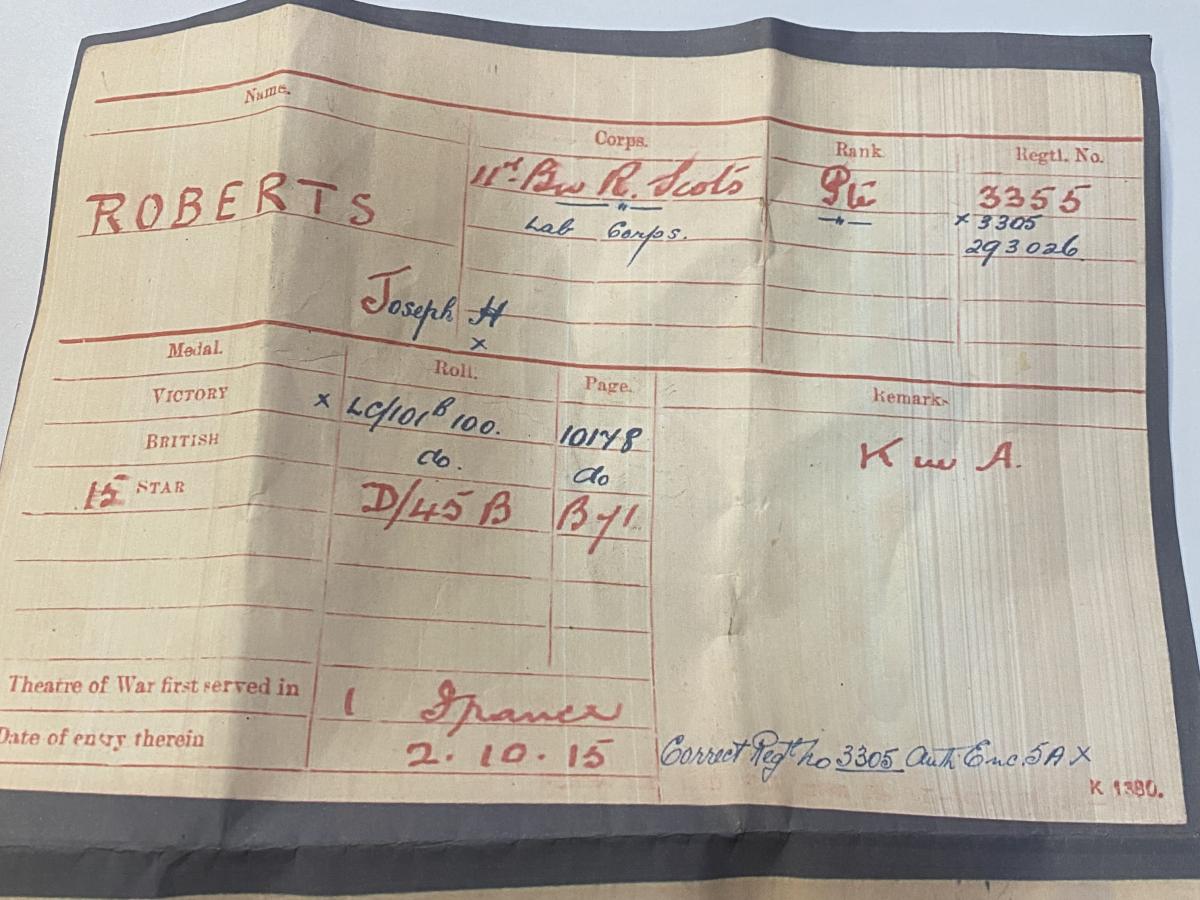 Name.
Corps.
Rank
Regtl. No.
ROBERTS
Bn R. Scots
Pte
3355
—"—
—"—
x 3305
Lab Corps.
293026
Joseph H
x
Medal.
Roll.
Page.
Remarks
VICTORY
x LC/101 B 100.
10148
BRITISH
do.
do
K in A.
15 STAR
D/45 B
Theatre of War first served in
1 France
Date of entry therein
2.10.15
Correct Regtl no 3305 Auth Enc. 5A x
K 1380.